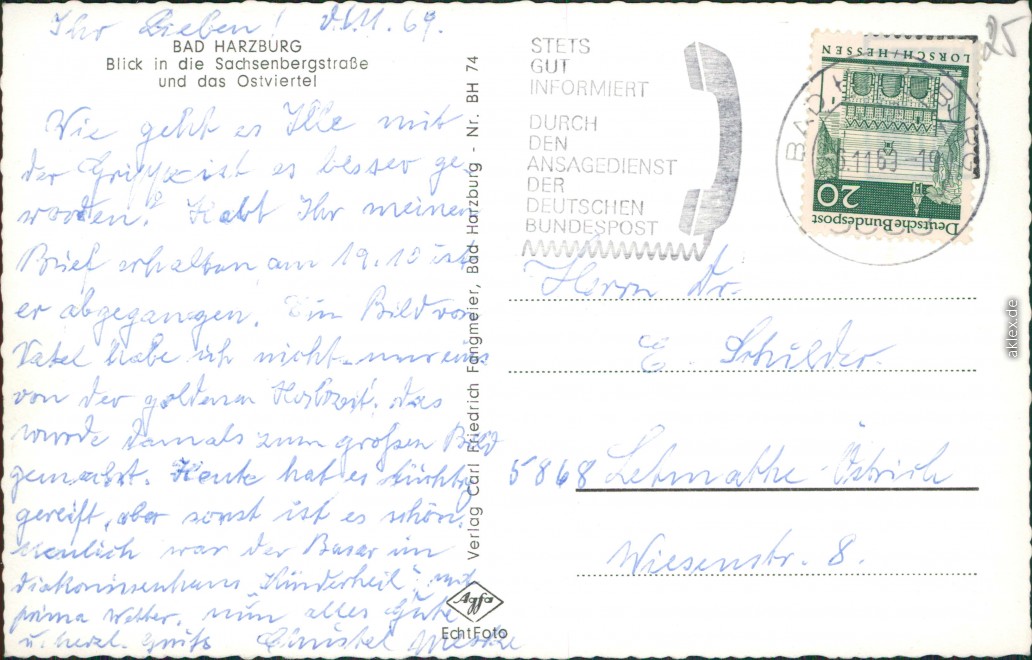 Ihr Lieben! 11.69.
BAD HARZBURG
Blick in die Sachsenbergstraße
und das Ostviertel
Wie geht es Ille mit
der Grippe ist es besser ge
worden? Habt Ihr meinen
Brief erhalten am 19.10 ist
er abgegangen. Ein Bild von
Vatel habe ich nicht nur eins
von der goldenen Hochzeit. das
wurde damals zum großen Bild
gemacht. Heute hat es tüchtig
gereift, aber sonst ist es schön.
neulich war der Basar im
Diakonissenhaus "Kinderheil" mit
prima Wetter. nun alles Gute
u. herzl. Grüße Christel
Verlag Carl Friedrich Fangmeier, Bad Harzburg - Nr. BH 74
Agfa
EchtFoto
STETS
GUT
INFORMIERT
DURCH
DEN
ANSAGEDIENST
DER
DEUTSCHEN
BUNDESPOST
BAD HARZBURG
11.69
LORSCH/HESSEN
20
Deutsche Bundespost
25
Herrn Dr.
E. Schulder.
5868 Letmathe-Östrich
Wiesenstr. 8.
aklex.de